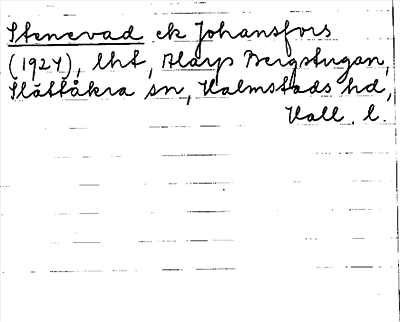 Stenevad ek Johansfors
(1927), lht, Alarp Bergstugan,
Slättåkra sn, Halmstads hd,
Hall. l.